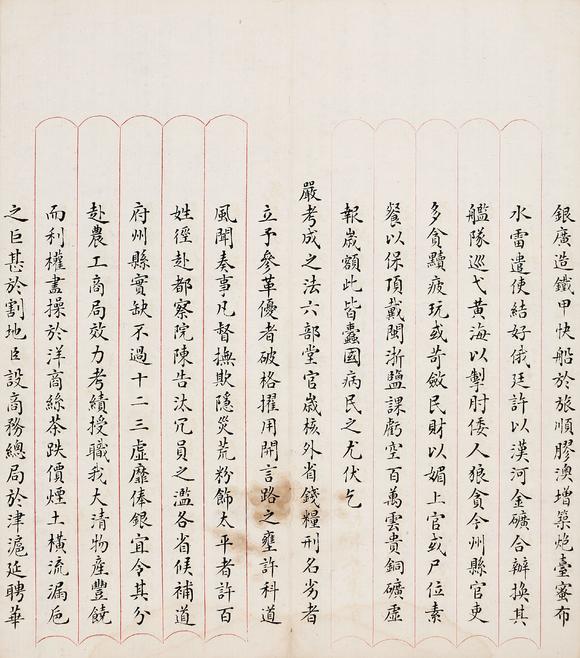 銀廣造鐵甲快船於旅順膠澳增築炮臺蜜布
水雷遣使結好俄廷許以漠河金礦合辦換其
艦隊巡弋黃海以掣肘倭人狼貪今州縣官吏
多貪黷疲玩或苛斂民財以媚上官或尸位素
餐以保頂戴閩浙鹽課虧空百萬雲貴銅礦虛
報歲額此皆蠹國病民之尤伏乞
嚴考成之法六部堂官歲核外省錢糧刑名劣者
立予參革優者破格擢用開言路之壅許科道
風聞奏事凡督撫欺隱災荒粉飾太平者許百
姓徑赴都察院陳告汰冗員之濫各省候補道
府州縣實缺不過十二三虛靡俸銀宜令其分
赴農工商局效力考績授職我大清物產豐饒
而利權盡操於洋商絲茶跌價煙土橫流漏卮
之巨甚於割地臣設商務總局於津滬延聘華